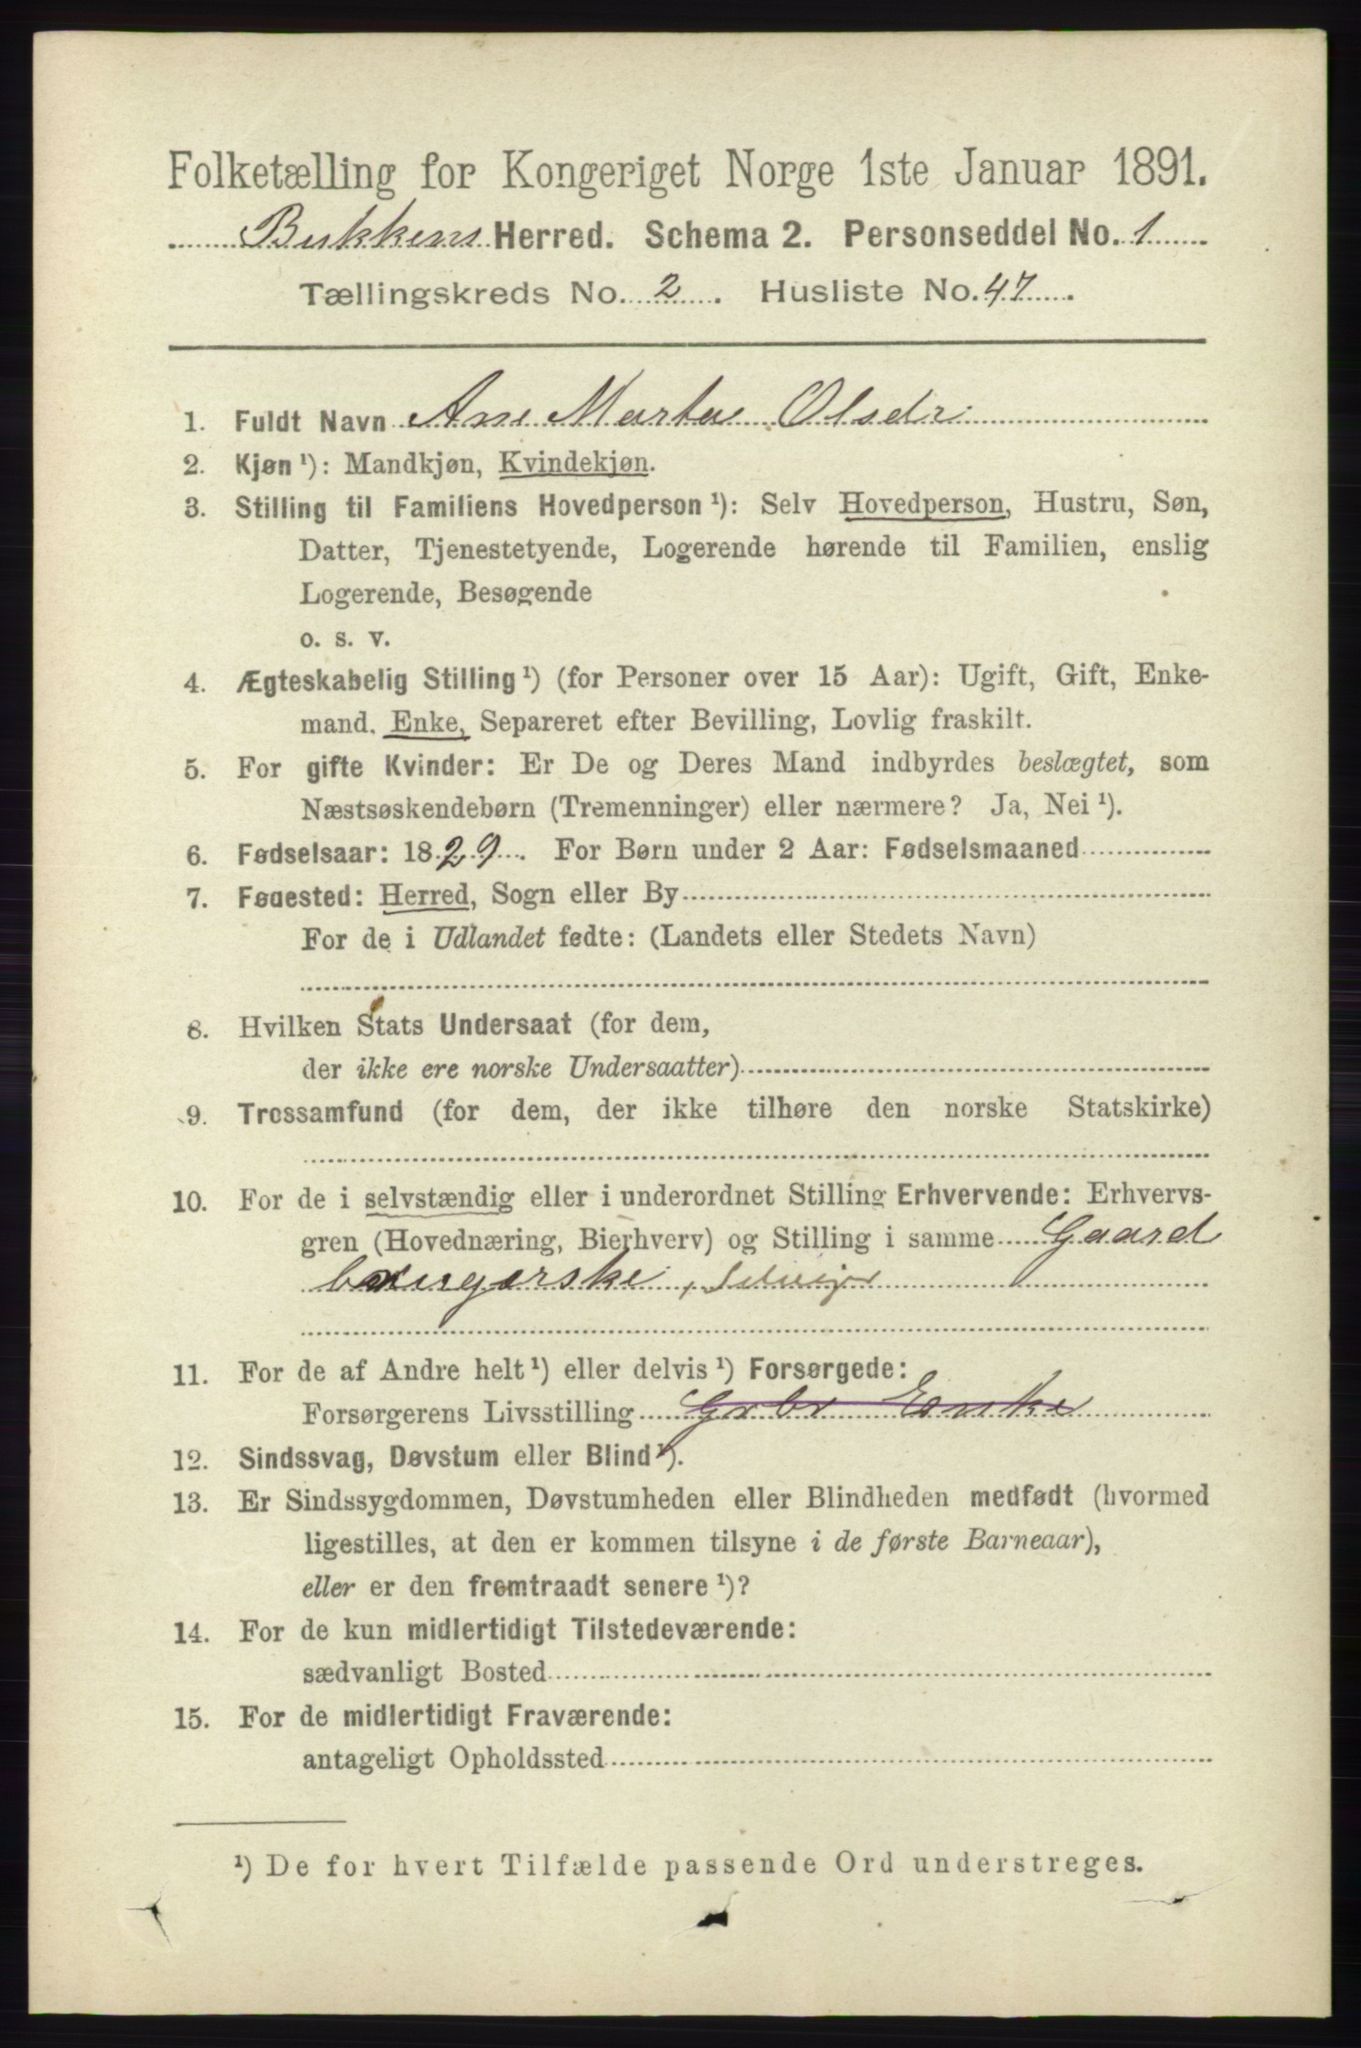 Folketælling for Kongeriget Norge 1ste Januar 1891.
Bukkens Herred. Schema 2. Personseddel No. 1
Tællingskreds No. 2. Husliste No. 47.
1. Fuldt Navn Ane Marta Olsdr
2. Kjøn ¹): Mandkjøn, Kvindekjøn.
3. Stilling til Familiens Hovedperson ¹): Selv Hovedperson, Hustru, Søn,
Datter, Tjenestetyende, Logerende hørende til Familien, enslig
Logerende, Besøgende
o. s. v.
4. Ægteskabelig Stilling ¹) (for Personer over 15 Aar): Ugift, Gift, Enke-
mand, Enke, Separeret efter Bevilling, Lovlig fraskilt.
5. For gifte Kvinder: Er De og Deres Mand indbyrdes beslægtet, som
Næstsøskendebørn (Tremenninger) eller nærmere? Ja, Nei ¹).
6. Fødselsaar: 1829. For Børn under 2 Aar: Fødselsmaaned
7. Fødested: Herred, Sogn eller By
For de i Udlandet fødte: (Landets eller Stedets Navn)
8. Hvilken Stats Undersaat (for dem,
der ikke ere norske Undersaatter)
9. Trossamfund (for dem, der ikke tilhøre den norske Statskirke)
10. For de i selvstændig eller i underordnet Stilling Erhvervende: Erhvervs-
gren (Hovednæring, Bierhverv) og Stilling i samme Gaard
brugerske, Selveier
11. For de af Andre helt ¹) eller delvis ¹) Forsørgede:
Forsørgerens Livsstilling Grbr Enke
12. Sindssvag, Døvstum eller Blind ¹).
13. Er Sindssygdommen, Døvstumheden eller Blindheden medfødt (hvormed
ligestilles, at den er kommen tilsyne i de første Barneaar),
eller er den fremtraadt senere ¹)?
14. For de kun midlertidigt Tilstedeværende:
sædvanligt Bosted
15. For de midlertidigt Fraværende:
antageligt Opholdssted
¹) De for hvert Tilfælde passende Ord understreges.